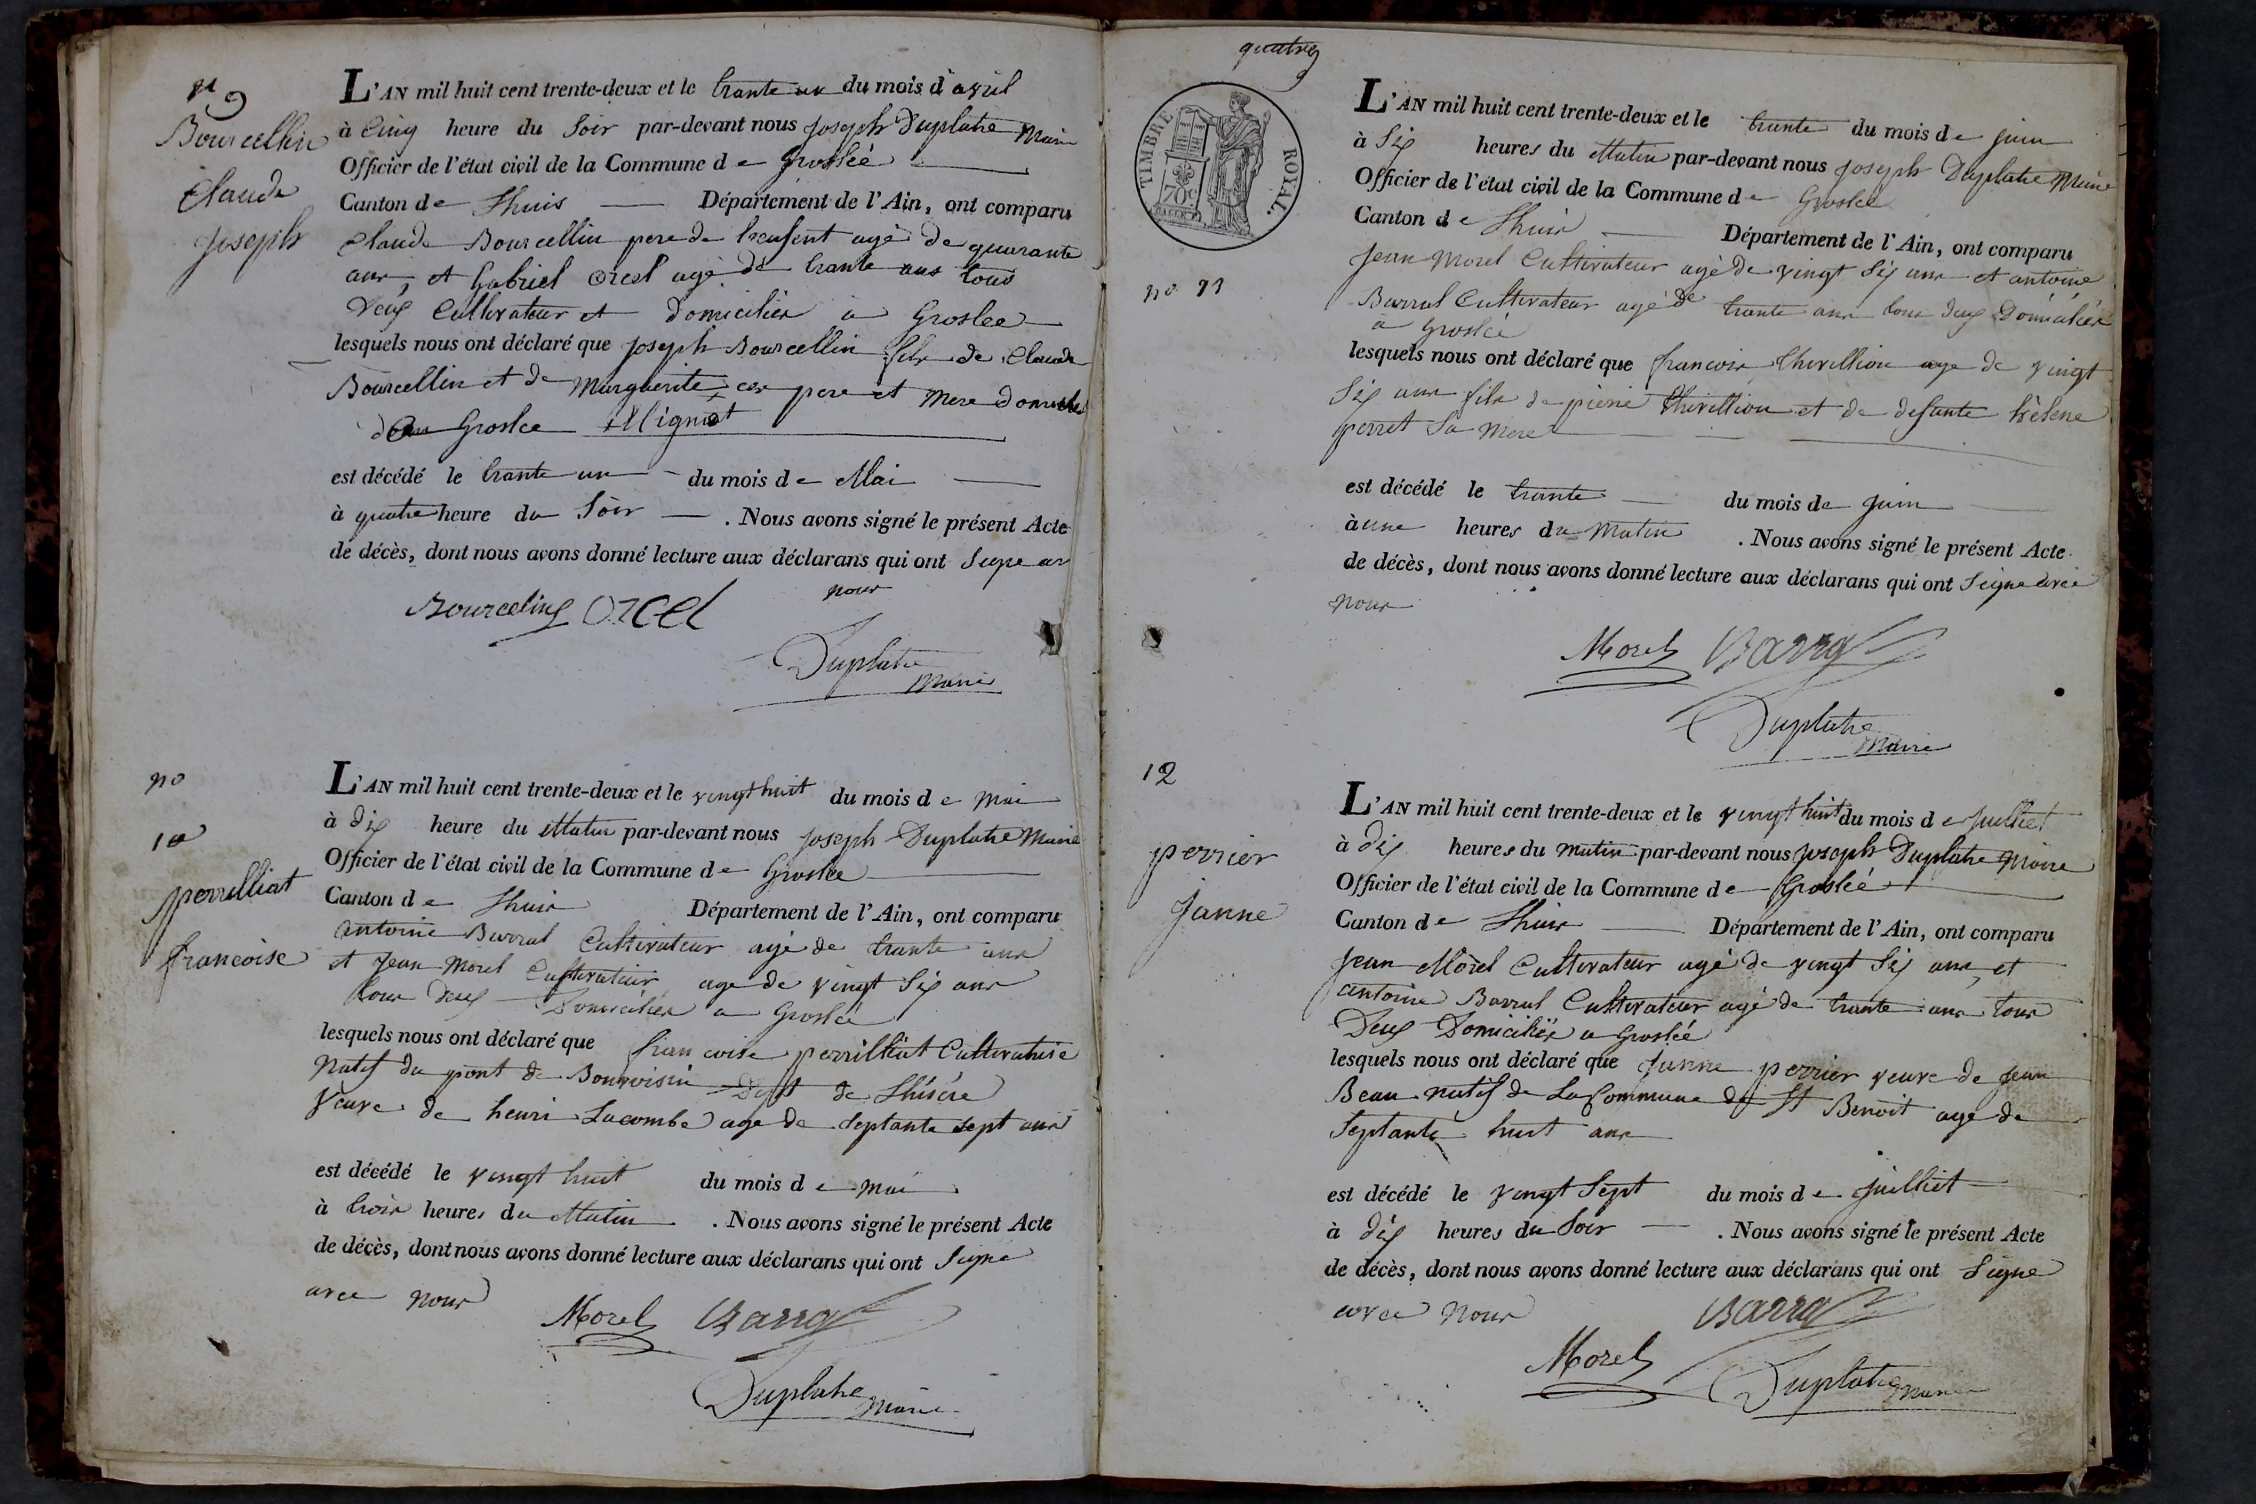 n 9
Bourcellin
Claude
Joseph
L'AN mil huit cent trente-deux et le trante un du mois d'avril
à Cinq heure du Soir par-devant nous joseph Duplatre Maire
Officier de l'état civil de la Commune de Groslée
Canton de Lhuis Département de l'Ain, ont comparu
Claude Bourcellin pere de agé de quarante
ans, et Gabriel Orcel agé de trante ans tous
Deux Cultivateur et domiciliés a Groslee
lesquels nous ont déclaré que joseph Bourcellin fils de Claude
Bourcellin et de Marguerite, ces pere et Mere
Groslee Mignot
est décédé le trante un du mois de Mai
à quatre heure du Soir . Nous avons signé le présent Acte
de décès, dont nous avons donné lecture aux déclarans qui ont Signe av
nous
Bourceling Orcel
Duplatre
Maire
no
10
perrilliat
francoise
L'AN mil huit cent trente-deux et le vingt huit du mois de Mai
à Dix heure du Matin par-devant nous joseph Duplatre Maire
Officier de l'état civil de la Commune de Groslee
Canton de Lhuis Département de l'Ain, ont comparu
antoine Barral Cultivateur agé de trante ans
et Jean Morel Cultivateur age de vingt Six ans
tous Deux Domiciliés a Groslée
lesquels nous ont déclaré que francoise perrilliat Cultivatrise
Natif du pont de Bonvoisin Dept de Lhisère
Veuve de henri Lacombe age de Septante Sept ans
est décédé le vingt huit du mois de Mai
à trois heures du Matin . Nous avons signé le présent Acte
de décès, dont nous avons donné lecture aux déclarans qui ont Signe
avec nous
Morel Barral
Duplatre
Maire
quatre
TIMBRE ROYAL.
70c
no 11
L'AN mil huit cent trente-deux et le trante du mois de juin
à Six heures du Matin par-devant nous joseph Duplatre Maire
Officier de l'état civil de la Commune de Groslee
Canton de Lhuis Département de l'Ain, ont comparu
Jean Morel Cultivateur agé de vingt Six ans et antoine
Barral Cultivateur agé de trante ans tous deux Domiciliés
a Groslée
lesquels nous ont déclaré que francois thevillion age de vingt
Six ans fils de pierre thevillion et de defunte hélene
perret Sa Mere
est décédé le trante du mois de juin
à une heures du Matin . Nous avons signé le présent Acte
de décès, dont nous avons donné lecture aux déclarans qui ont Seigne avec
nous
Morel Barral
Duplatre
Maire
12
perrier
Janne
L'AN mil huit cent trente-deux et le vingt huit du mois de Juilliet
à Dix heures du Matin par-devant nous joseph Duplatre Maire
Officier de l'état civil de la Commune de Groslée
Canton de Lhuis Département de l'Ain, ont comparu
Jean Morel Cultivateur agé de vingt Six ans, et
antoine Barral Cultivateur agé de trante ans tous
Deux Domiciliés a Groslée
lesquels nous ont déclaré que Janne perrier veuve de Jean
Beau natif de La Commune de St Benoit age de
Septante huit ans
est décédé le vingt Sept du mois de Juilliet
à dix heures du Soir . Nous avons signé le présent Acte
de décès, dont nous avons donné lecture aux déclarans qui ont Signe
avec nous
Barral
Morel
Duplatre
Maire